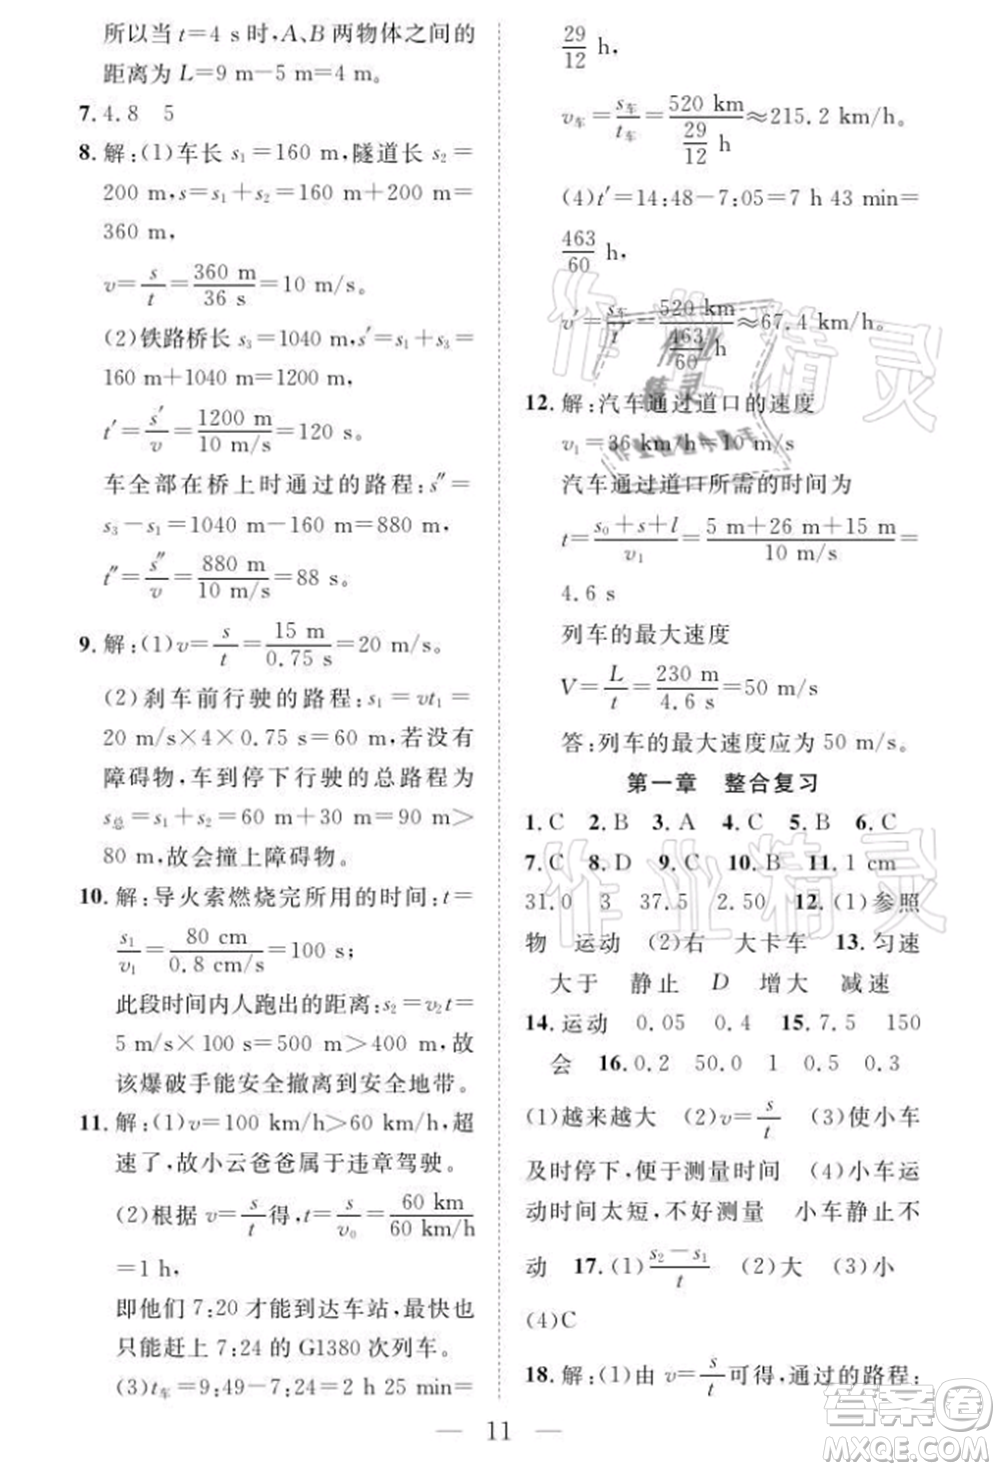 所以当 t=4 s时,A、B 两物体之间的
距离为 L=9 m-5 m=4 m。
7. 4.8 5
8. 解:(1)车长 s₁=160 m,隧道长 s₂=
200 m,s=s₁+s₂=160 m+200 m=
360 m,
v=s/t=360 m/36 s=10 m/s。
(2)铁路桥长 s₃=1040 m,s′=s₁+s₃=
160 m+1040 m=1200 m,
t′=s′/v=1200 m/10 m/s=120 s。
车全部在桥上时通过的路程:s″=
s₃-s₁=1040 m-160 m=880 m,
t″=s″/v=880 m/10 m/s=88 s。
9. 解:(1)v=s/t=15 m/0.75 s=20 m/s。
(2)刹车前行驶的路程:s₁=vt₁=
20 m/s×4×0.75 s=60 m,若没有
障碍物,车到停下行驶的总路程为
s总=s₁+s₂=60 m+30 m=90 m>
80 m,故会撞上障碍物。
10. 解:导火索燃烧完所用的时间:t=
s₁/v₁=80 cm/0.8 cm/s=100 s;
此段时间内人跑出的距离:s₂=v₂t=
5 m/s×100 s=500 m>400 m,故
该爆破手能安全撤离到安全地带。
11. 解:(1)v=100 km/h>60 km/h,超
速了,故小云爸爸属于违章驾驶。
(2)根据 v=s/t得,t=s/v₀=60 km/60 km/h
=1 h,
即他们 7:20 才能到达车站,最快也
只能赶上 7:24 的 G1380 次列车。
(3)t车=9:49-7:24=2 h 25 min=
29/12 h,
v车=s车/t车=520 km/(29/12 h)≈215.2 km/h。
(4)t′=14:48-7:05=7 h 43 min=
463/60 h,
v′=s车/t′=520 km/(463/60 h)≈67.4 km/h。
12. 解:汽车通过道口的速度
v₁=36 km/h=10 m/s
汽车通过道口所需的时间为
t=(s₀+s+l)/v₁=(5 m+26 m+15 m)/10 m/s=
4.6 s
列车的最大速度
V=L/t=230 m/4.6 s=50 m/s
答:列车的最大速度应为 50 m/s。
第一章 整合复习
1. C 2. B 3. A 4. C 5. B 6. C
7. C 8. D 9. C 10. B 11. 1 cm
31.0 3 37.5 2.50 12. (1)参照
物 运动 (2)右 大卡车 13. 匀速
大于 静止 D 增大 减速
14. 运动 0.05 0.4 15. 7.5 150
会 16. 0.2 50.0 1 0.5 0.3
(1)越来越大 (2)v=s/t (3)使小车
及时停下,便于测量时间 (4)小车运
动时间太短,不好测量 小车静止不
动 17. (1)(s₂-s₁)/t (2)大 (3)小
(4)C
18. 解:(1)由 v=s/t可得,通过的路程:
— 11 —
作业精灵
作业精灵
作业精灵
答案圈
MXQE.COM